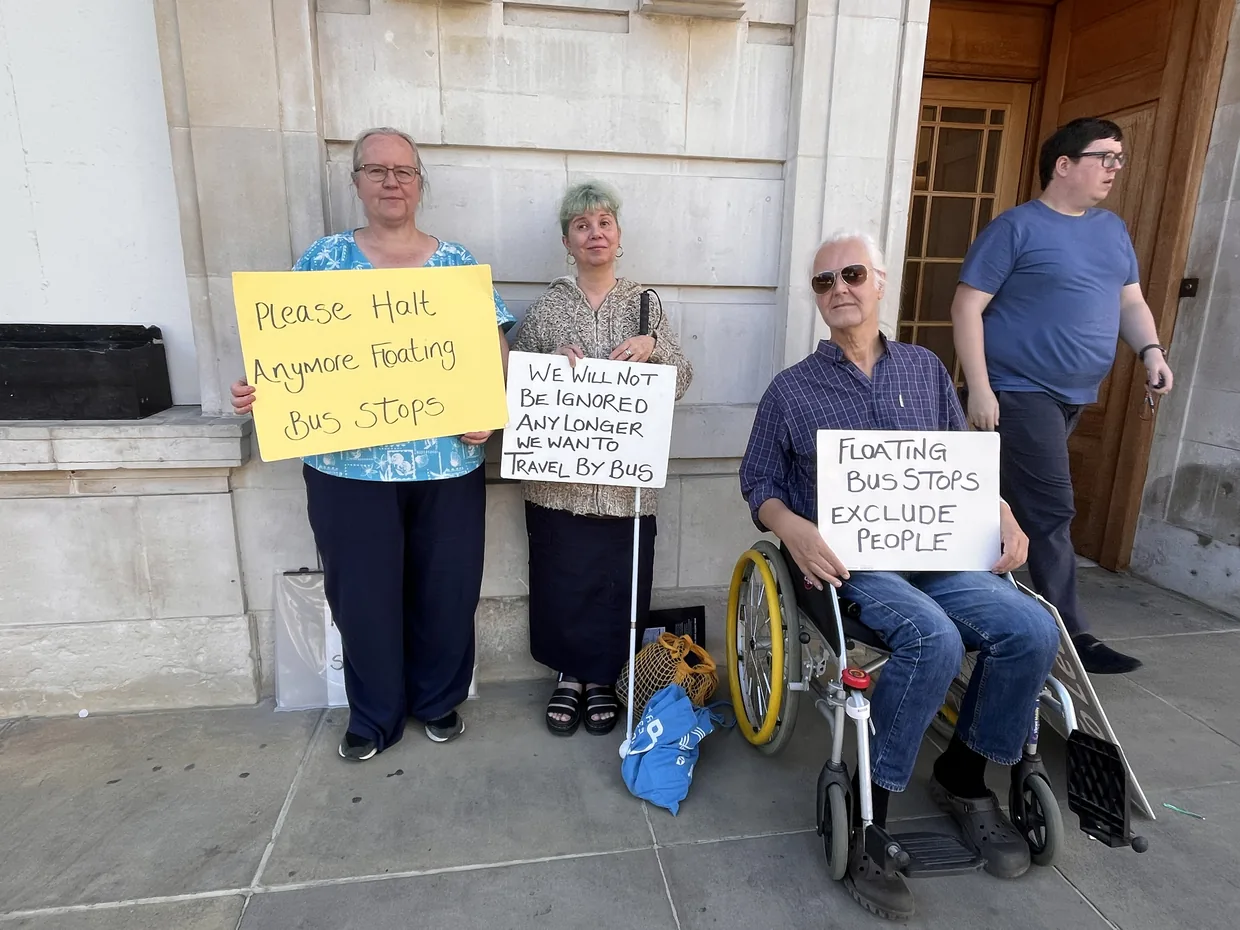 Please Halt
Anymore Floating
Bus Stops
WE WILL NOT
BE IGNORED
ANY LONGER
WE WANT TO
TRAVEL BY BUS
FLOATING
BUS STOPS
EXCLUDE
PEOPLE